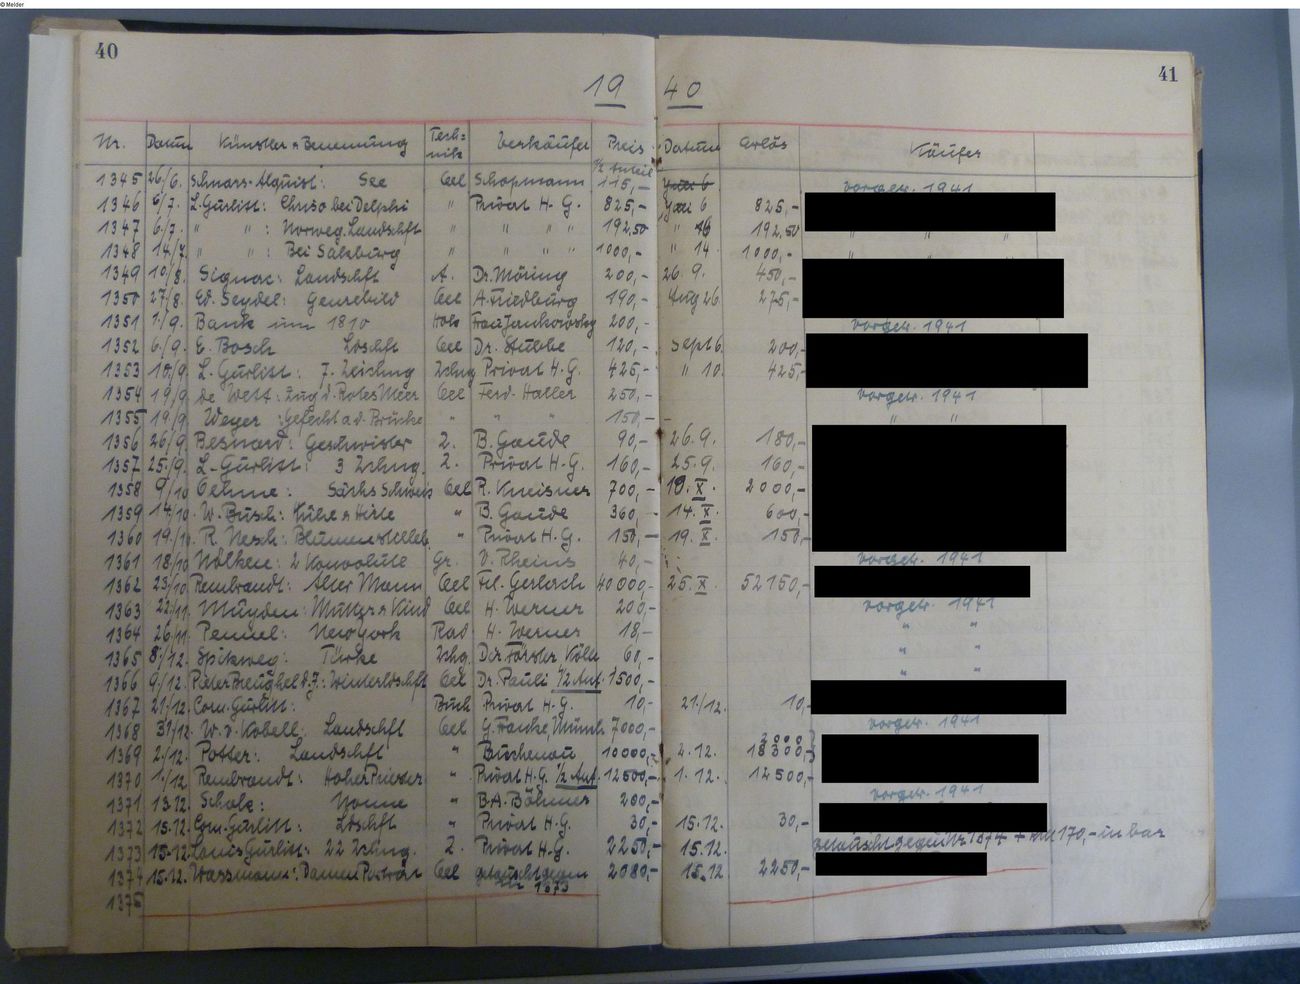 © Melder
40
41
19 40
Nr. Datum Künstler u Benennung Tech= nik Verkäufer Preis Datum Erlös Käufer
½ Anteil
1345 26/6. Schnars-Alquist: See Oel Schopmann 115,- vorgetr. 1941
1346 6/7. L. Gurlitt: Chryso bei Delphi " Privat H. G. 825,- 6 825,-
1347 6/7. " " : Norweg. Landschft " " " " 192,50 " 16 192,50 " " "
1348 14/7. " " : Bei Salzburg " " " " 1000,- " 14. 1000,- " " "
1349 10/8. Signac: Landschft A. Dr. Möring 200,- 26. 9. 450,-
1350 27/8. Ed. Seydel: Genrebild Oel A. Friedburg 190,- Aug 26. 275,-
1351 1./9. Bank um 1810 Holz Frau Jankowsky 200,- vorgetr. 1941
1352 6./9. E. Bosch Ldschft Oel Dr. Stubbe 120,- Sept 6. 200,-
1353 10/9. L. Gurlitt: 7. Zeichng Zchng Privat H. G. 425,- " 10. 425,-
1354 19/9. de Wett: Zug d. Rotes Meer Oel Ferd. Haller 250,- vorgetr. 1941
1355 19/9. Weyer: Gefecht a d. Brücke " " " 150,- " "
1356 26/9. Besnard: Geschwister Z. B. Gaude 90,- 26. 9. 180,-
1357 25./9. L. Gurlitt: 3 Zchng. Z. Privat H. G. 160,- 25. 9. 160,-
1358 9/10 Oehme: Sächs Schweiz Oel R. Kneisner 700,- 19. X. 2000,-
1359 14/10. W. Busch: Kühe u Hirte " B. Gaude 360,- 14. X. 600,-
1360 19./10. R. Nesch: Blumenstilleb. " Privat H. G. 150,- 19. X. 150,-
1361 18/10 Nölken: 2 Konvolute Gr. V. Rheins 40,- vorgetr. 1941
1362 23/10 Rembrandt: Alter Mann Oel Frl. Gerlach 40000,- 25. X. 52150,-
1363 22/11. Mutter u Kind Oel H. Werner 200,- vorgetr. 1941
1364 26/11. Pennel: New York Rad H. Werner 18,- " "
1365 8./12. Spitzweg: Türke Zchg. Dir. Förster Köln 60,- " "
1366 9/12. Pieter Breughel d. J.: Winterldschft Oel Dr. Pauli ½ Ant. 1500,- " "
1367 21./12. Corn. Gurlitt: Buch Privat H. G. 10,- 21./12. 10,-
1368 31/12. W. v. Kobell. Landschft Oel G. Francke, Münch 7000,- vorgetr. 1941
2000
1369 2./12. Potter: Landschft " Buchenau 10000,- 2. 12. 18300,-
1370 1./12. Rembrandt: Hoher Priester " Privat H. G. ½ Ant. 12500,- 1. 12. 12500,-
1371 13.12. Scholz: Nonne " B. A. Böhmer 200,- vorgetr. 1941
1372 15.12. Corn. Gurlitt: Ldschft " Privat H. G. 30,- 15. 12. 30,-
1373 15.12. Louis Gurlitt: 22 Zchng. Z. Privat H. G. 2250,- 15. 12. getauscht gegen Nr. 1374 + RM 170,- in bar
1374 15.12. Wassmann: Damen Porträt Oel getauscht gegen 2080,- 15.12 2250,-
Nr 1373
1375